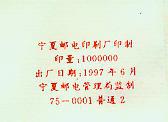 宁夏邮电印刷厂印制
印量：1000000
出厂日期：1997 年 6 月
宁夏邮电管理局监制
75—0001 普通 2